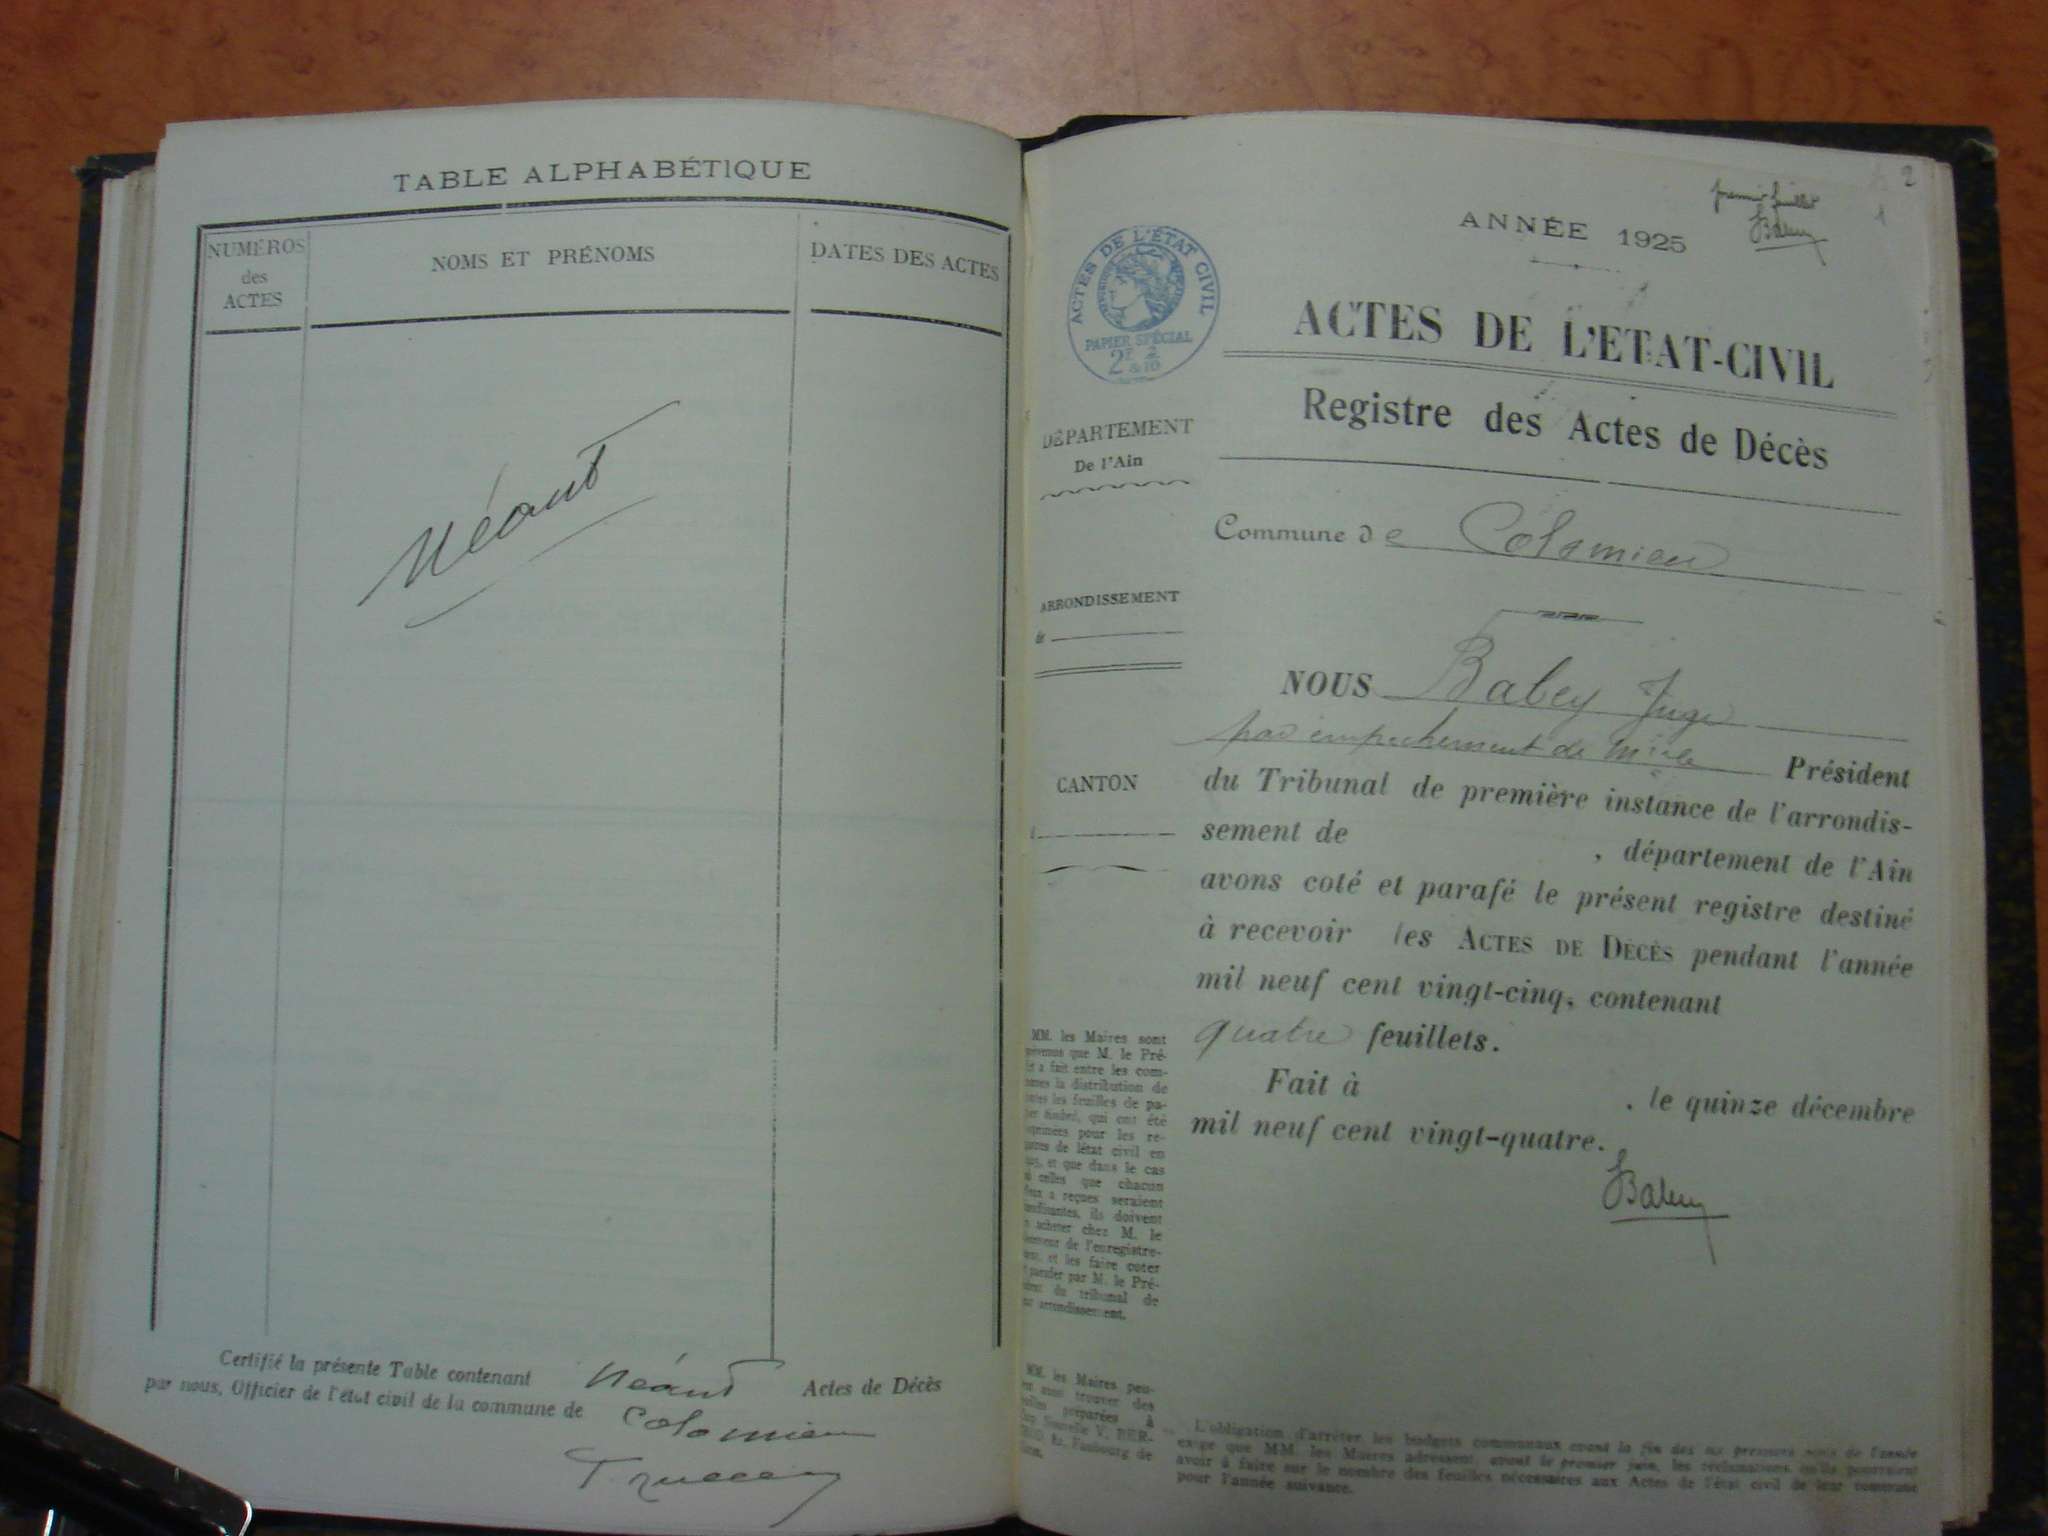 TABLE ALPHABÉTIQUE
NUMÉROS
des
ACTES
NOMS ET PRÉNOMS
DATES DES ACTES
Néant
Certifié la présente Table contenant Néant Actes de Décès
par nous, Officier de l'état civil de la commune de Colomieu
2
premier feuillet
1
Babey
ANNÉE 1925
ACTES DE L'ÉTAT CIVIL
PAPIER SPÉCIAL
2F & 2/10
ACTES DE L'ETAT-CIVIL
Registre des Actes de Décès
DÉPARTEMENT
De l'Ain
Commune de Colomieu
ARRONDISSEMENT
de
NOUS Babey Juge
par empêchement de Mr le Président
CANTON
du Tribunal de première instance de l'arrondis-
sement de , département de l'Ain
avons coté et parafé le présent registre destiné
à recevoir les ACTES DE DÉCÈS pendant l'année
mil neuf cent vingt-cinq, contenant
quatre feuillets.
Fait à , le quinze décembre
mil neuf cent vingt-quatre.
Babey
MM. les Maires sont
que M. le Pré-
a fait entre les com-
la distribution de
les feuilles de pa-
timbré, qui ont été
pour les re-
de l'état civil en
et que dans le cas
celles que chacun
a reçues seraient
ils doivent
acheter chez M. le
de l'enregistre-
et les faire coter
parafer par M. le Pré-
du tribunal de
arrondissement.
MM. les Maires peu-
aussi trouver des
préparées à
Nouvelle V. BER-
Faubourg de
L'obligation d'arrêter les budgets communaux avant la fin des six premiers mois de l'année
exige que MM. les Maires adressent, avant le premier juin, les réclamations qu'ils pourraient
avoir à faire sur le nombre des feuilles nécessaires aux Actes de l'état civil de leur commune
pour l'année suivante.